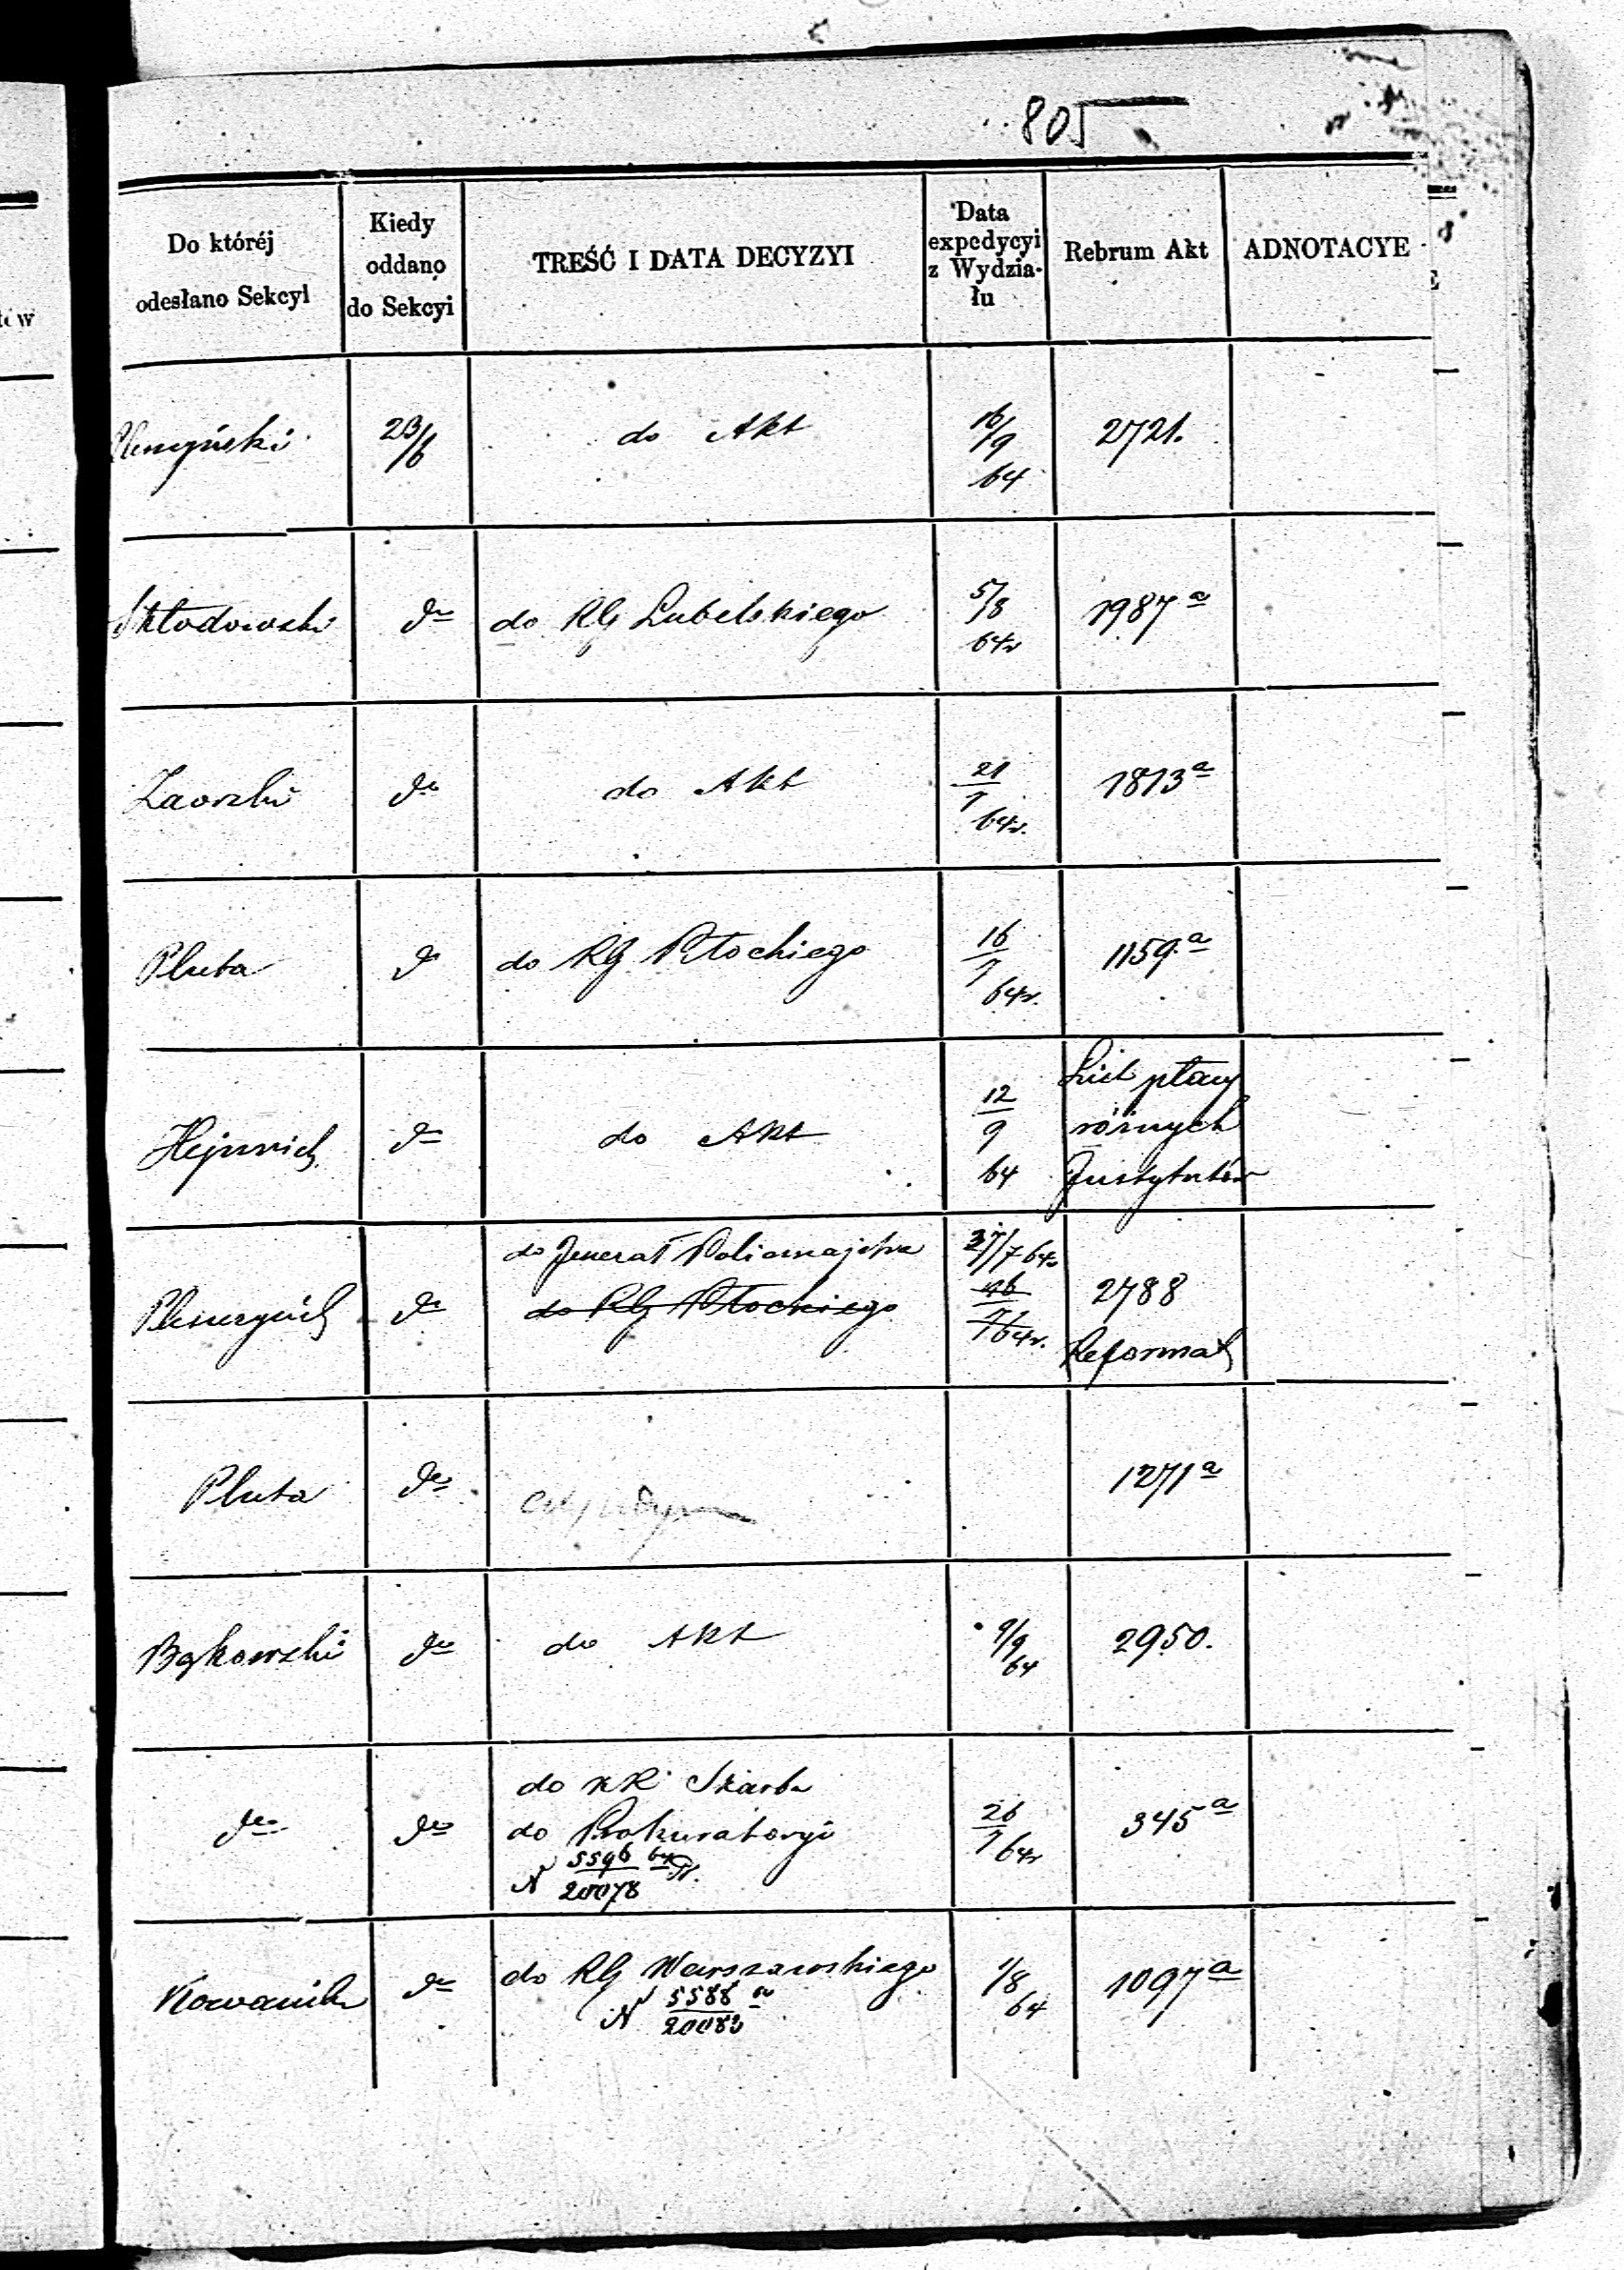 805
Do któréj odesłano Sekcyi
Kiedy oddano do Sekcyi
TREŚĆ I DATA DECYZYI
Data expedycyi z Wydzia-łu
Rebrum Akt
ADNOTACYE
23/6 do Akt 16/9 64 2721.
Skłodowski do do RG Lubelskiego 5/8 64r 1987 a
do do Akt 21/7 64r. 1813 a
Pluta do do RG Płockiego 16/7 64r. 1159. a
Hejnrich do do Akt 12/9 64 płacy
różnych
Instytutów
do Jenerał Policmajstra 27/7 64r
do do RG Płockiego 16/7 64r. 2788
Reformat
Pluta do 1271 a
Bąkowski do do Akt 9/9 64 2950.
do KR Skarbu
do do do Prokuratoryi 26/7 64r 345 a
N 5596/20078 64
do do RG Warszawskiego 1/8 64 1097 a
N 5588/20083